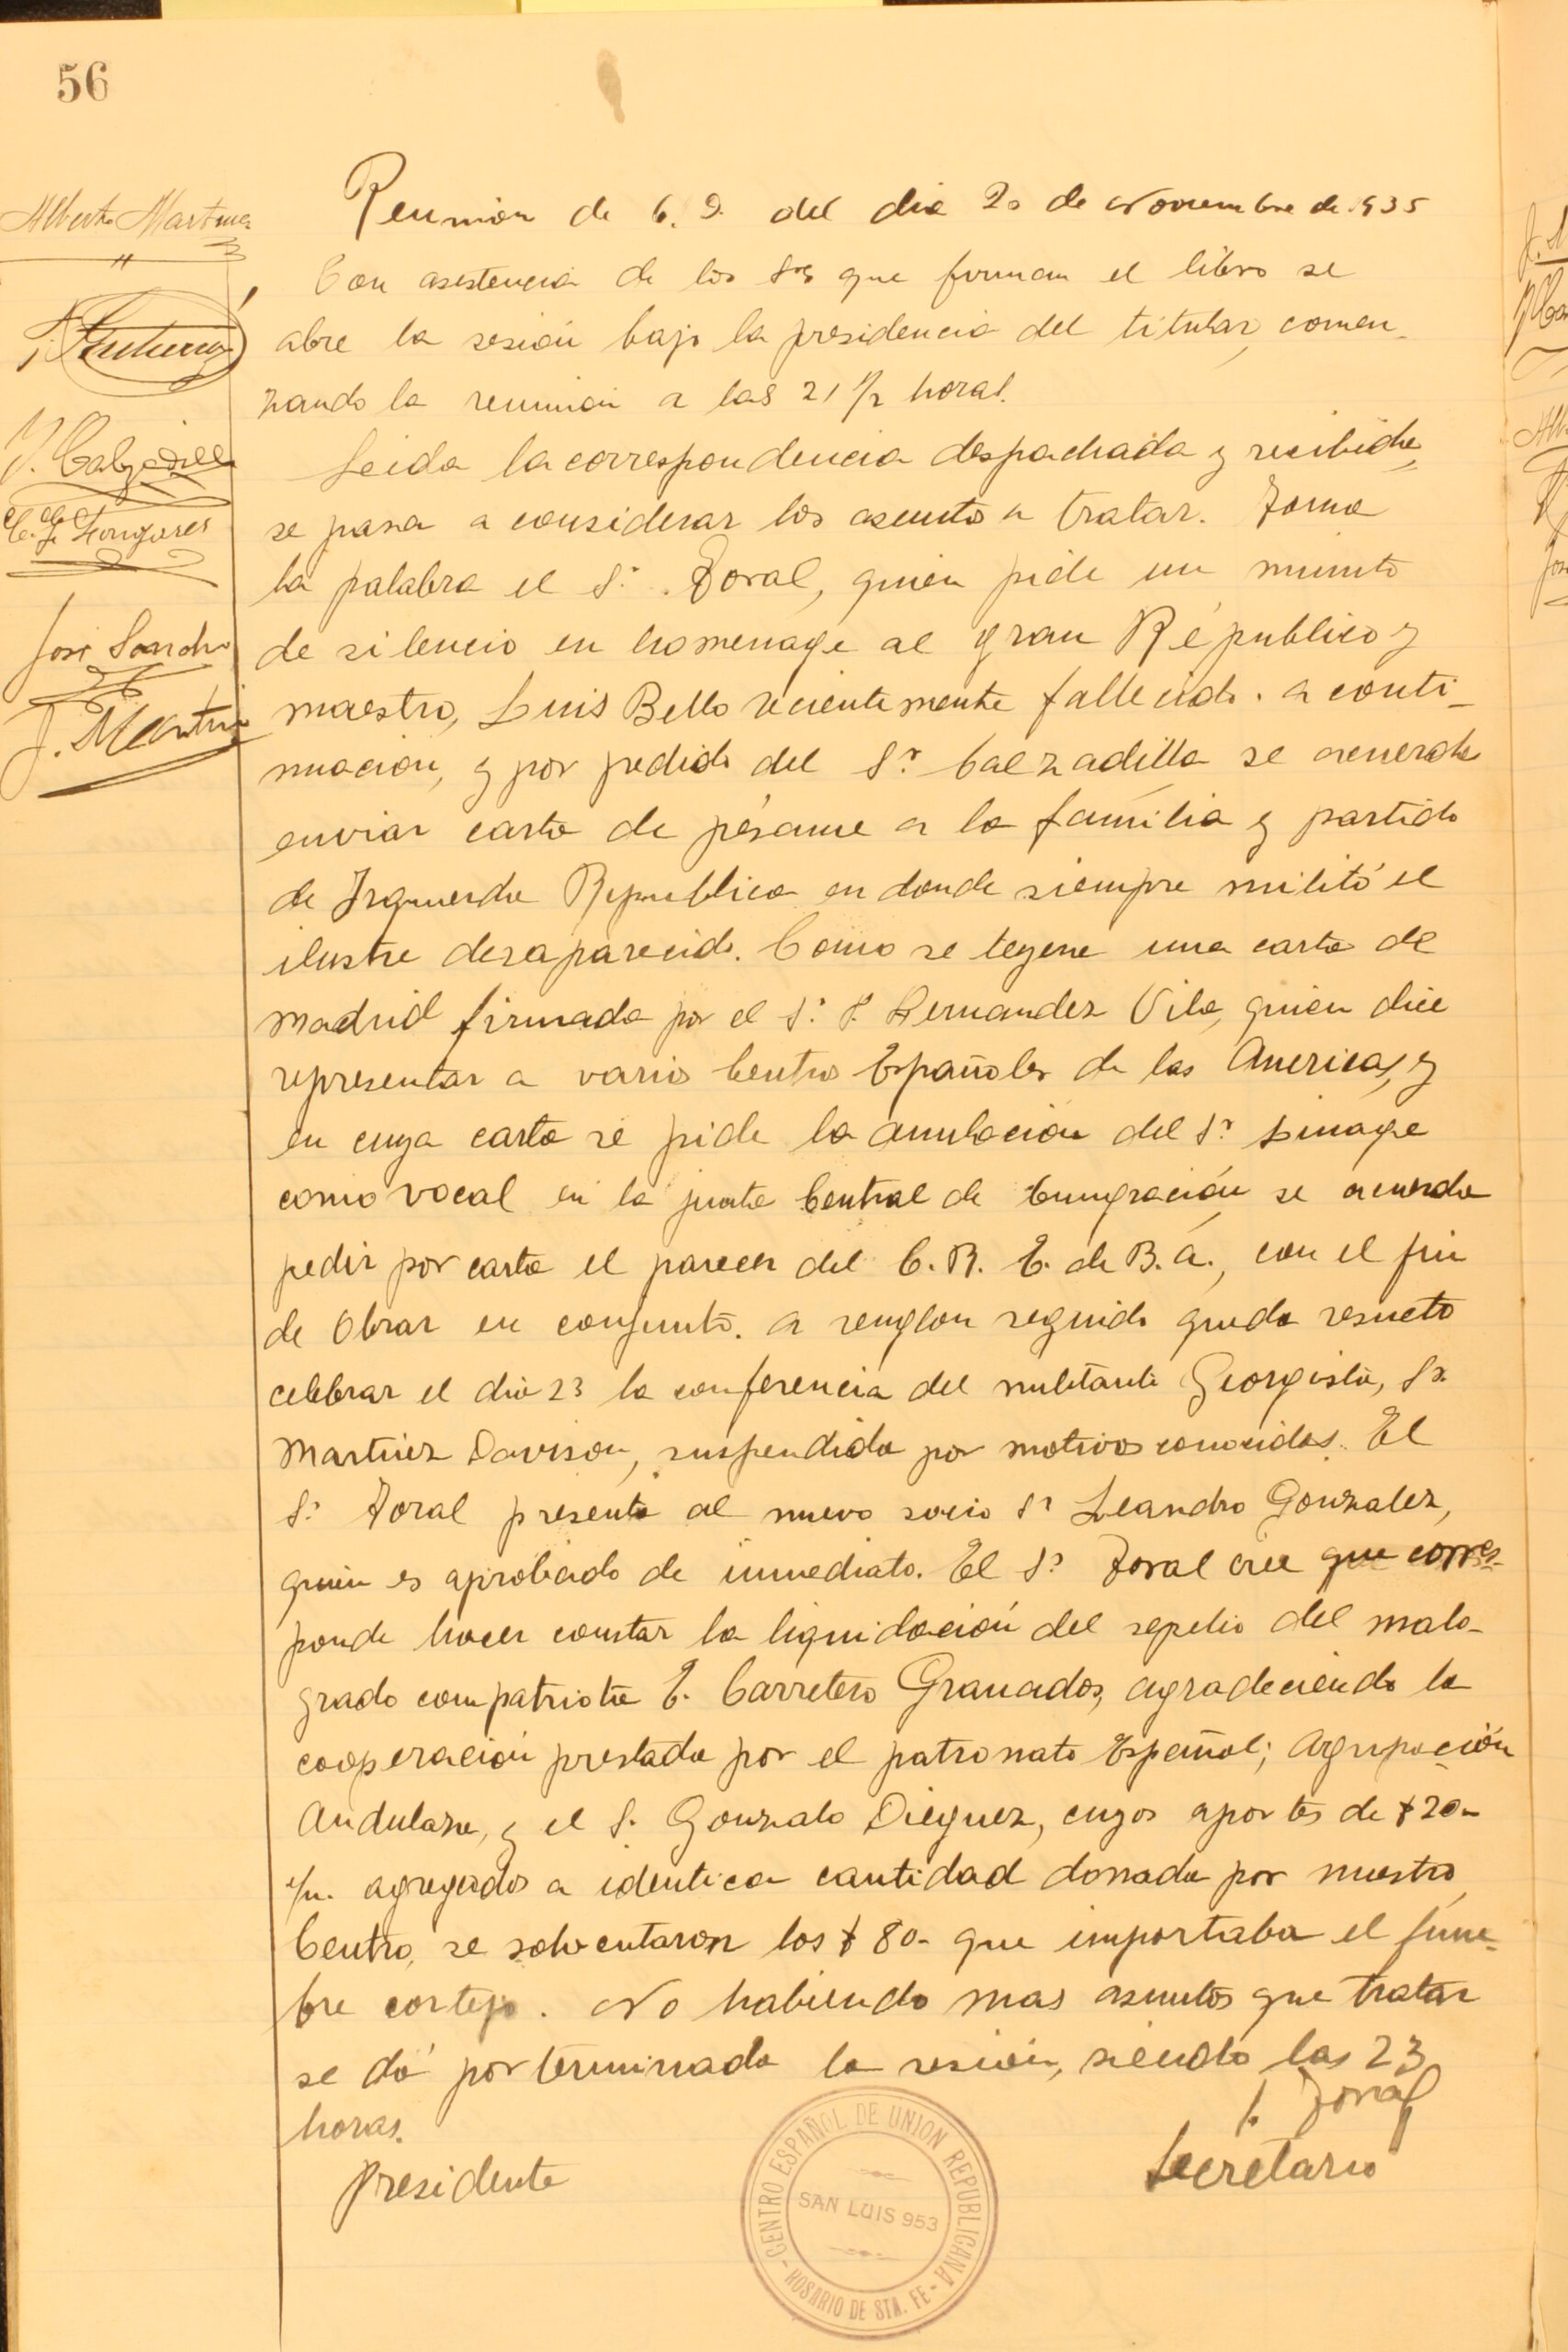 56
Alberto Martinez
J. Calzadilla
José Sancho
J. Martin
Reunión de C. D. del dia 20 de Noviembre de 1935
Con asestencia de los Srs que firman el libro se
abre la sesión bajo la presidencia del titular, comen-
zando la reunión a las 21 1/2 horas.
Leida la correspondencia despachada y recibida,
se pasa a considerar los asuntos a tratar. Toma
la palabra el Sr. Toral, quien pide un minuto
de silencio en homenage al gran Républico y
maestro, Luis Bello recientemente fallecido. a conti-
nuación, y por pedido del Sr. Calzadilla se acuerda
enviar carta de pésame a la familia y partido
de Izquierda Republica en donde siempre militó el
ilustre desaparecido. Como se leyese una carta de
Madrid firmada por el Sr. F. Hernandez Vila, quien dice
representar a varios Centros Españoles de las Americas, y
en cuya carta se pide la anulación del Sr. Linage
como vocal en la junta Central de Emigración, se acuerda
pedir por carta el parecer del C. R. E. de B. A., con el fin
de Obrar en conjunto. a renglon seguido queda resueto
celebrar el dia 23 la conferencia del militante Georgista, Sr.
Martinez Davison, suspendida por motivos conocidos. El
Sr. Toral presenta al nuevo socio Sr Leandro Gonzalez,
quien es aprobado de inmediato. El Sr. Toral cree que corres-
ponde hacer constar la liquidación del sepelio del malo-
grado compatriota E. Carretero Granados, agradeciendo la
cooperación prestada por el patronato Español; Agrupación
Andulaza, y el S. Gonzalo Dieguez, cuyos aportes de $ 20-
c/u. agregados a identica cantidad donada por nuestro
Centro, se solventaron los $ 80- que importaba el fune-
bre cortejo. No habiendo mas asuntos que tratar
se dá por terminada la sesión, siendo las 23
horas.
Toral
Presidente
Secretario
CENTRO ESPAÑOL DE UNION REPUBLICANA
SAN LUIS 953
- ROSARIO DE STA. FE -